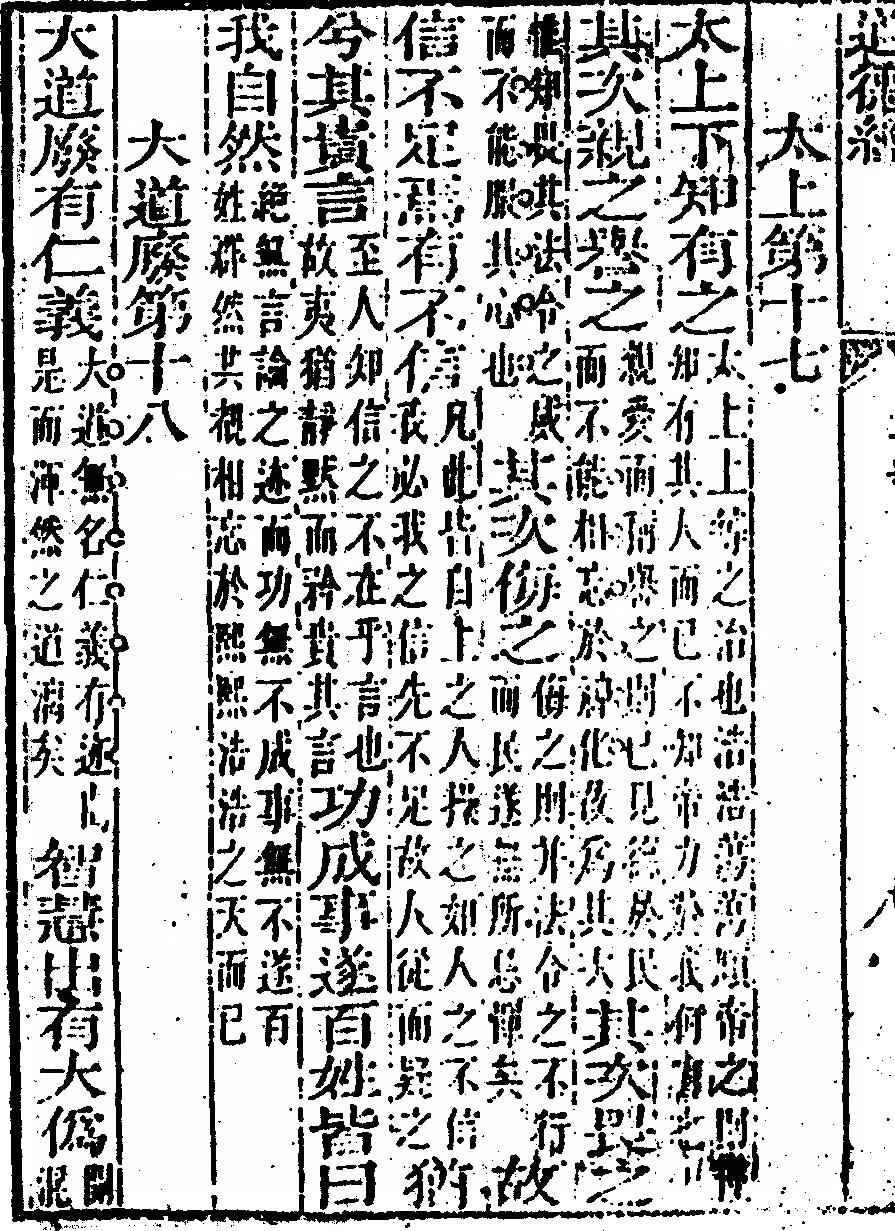 道德經
太上第十七
太上下知有之太上上等之治也浩浩蕩蕩順帝之則知有其人而已不知帝力於我何有
其次親之譽之親愛而稱譽之則已見德於民而不能相忘於神化故爲其次其次畏之
惟知畏其法令之威而不能服其心也其次侮之侮之則并法令之不行而民遂無所忌憚矣故
信不足焉有不信凡此皆自上之人操之如人之不信我必我之信先不足故人從而疑之猶
兮其貴言至人知信之不在乎言也故夷猶靜默而矜貴其言功成事遂百姓皆曰
我自然絶無言論之迹而功無不成事無不遂百姓群然共覩相忘於熙熙浩浩之天而已
大道廢第十八
大道廢有仁義大道無名仁義有迹是而渾然之道漓矣智慧出有大僞